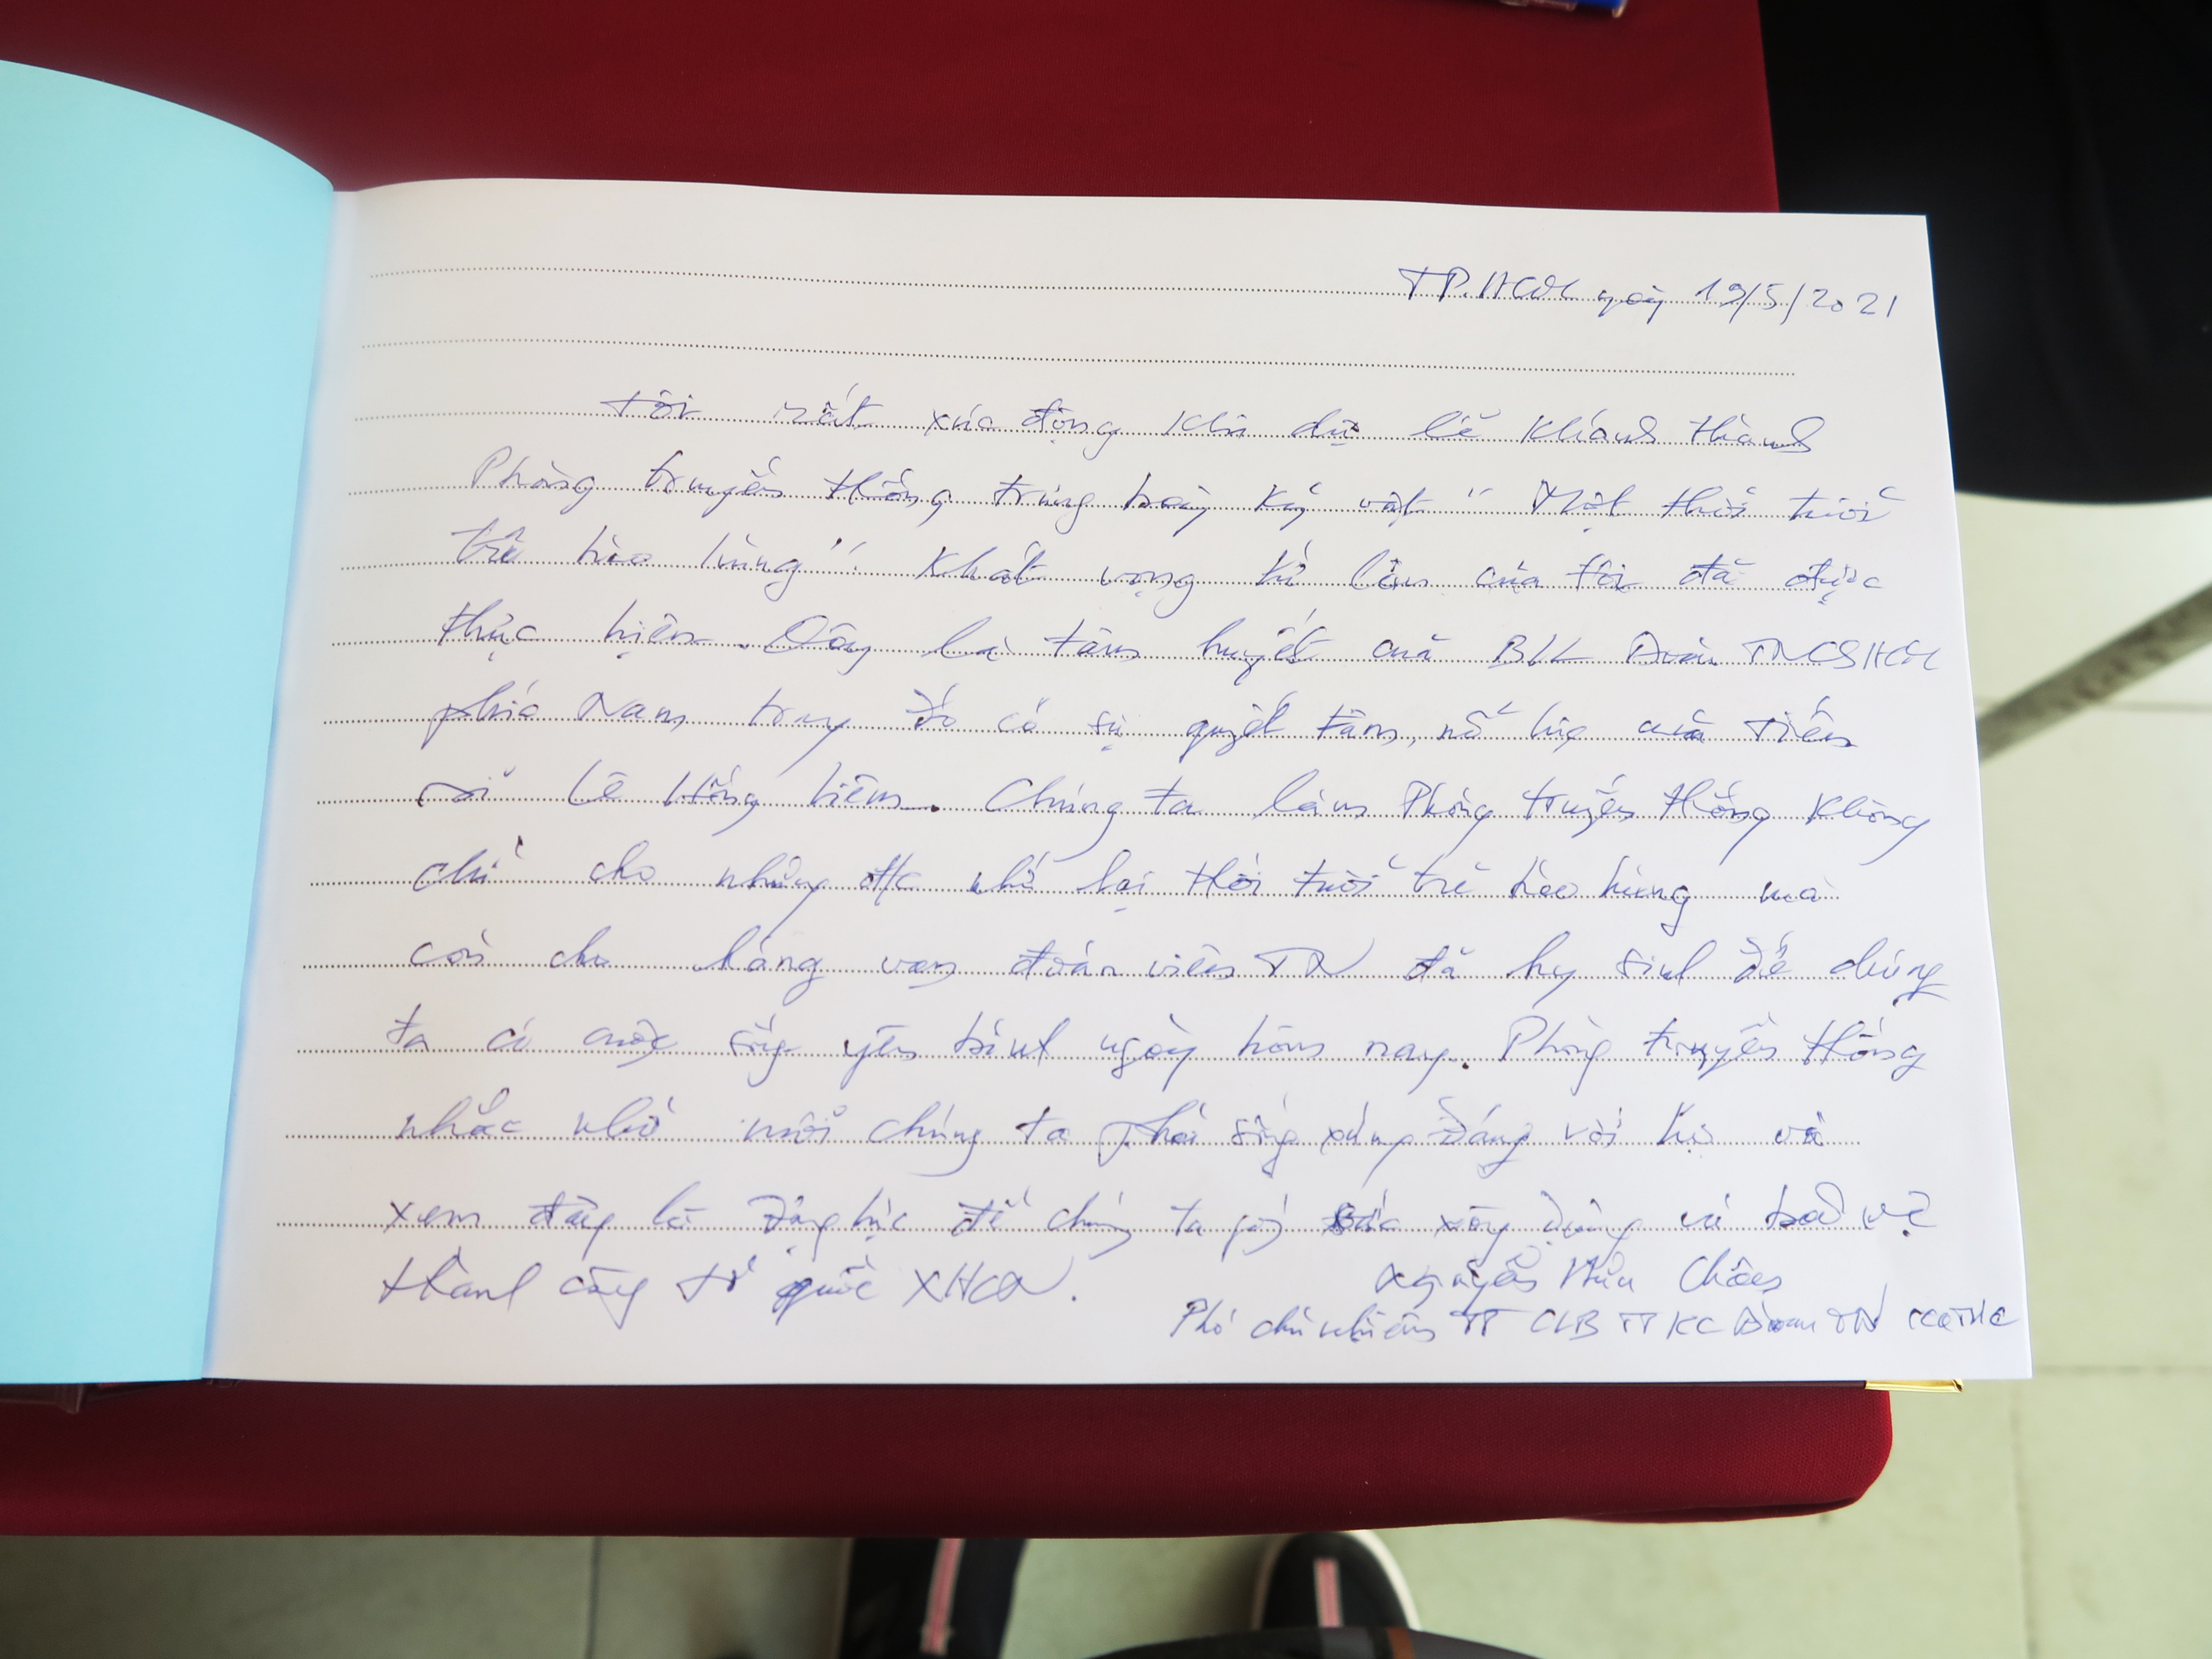 TP.HCM ngày 19/5/2021
Tôi rất xúc động khi dự lễ khánh thành
Phòng truyền thống trưng bày kỷ vật "Một thời tuổi
trẻ hào hùng". Khát vọng từ lâu của tôi đã được
thực hiện. Đây là tâm huyết của BLL Đoàn TNCSHCM
phía Nam, trong đó có sự quyết tâm, nỗ lực của Tiến
sĩ Lê Hồng Liêm. Chúng ta làm Phòng truyền thống không
chỉ cho những đ/c nhớ lại thời tuổi trẻ hào hùng mà
còn cho hàng vạn đoàn viên TN đã hy sinh để chúng
ta có cuộc sống yên bình ngày hôm nay. Phòng truyền thống
nhắc nhở mỗi chúng ta phải sống xứng đáng với họ và
xem đây là động lực để chúng ta góp sức xây dựng và bảo vệ
thành công tổ quốc XHCN.
Nguyễn Hữu Châu
Phó chủ nhiệm TT CLB TT KC Đoàn TN